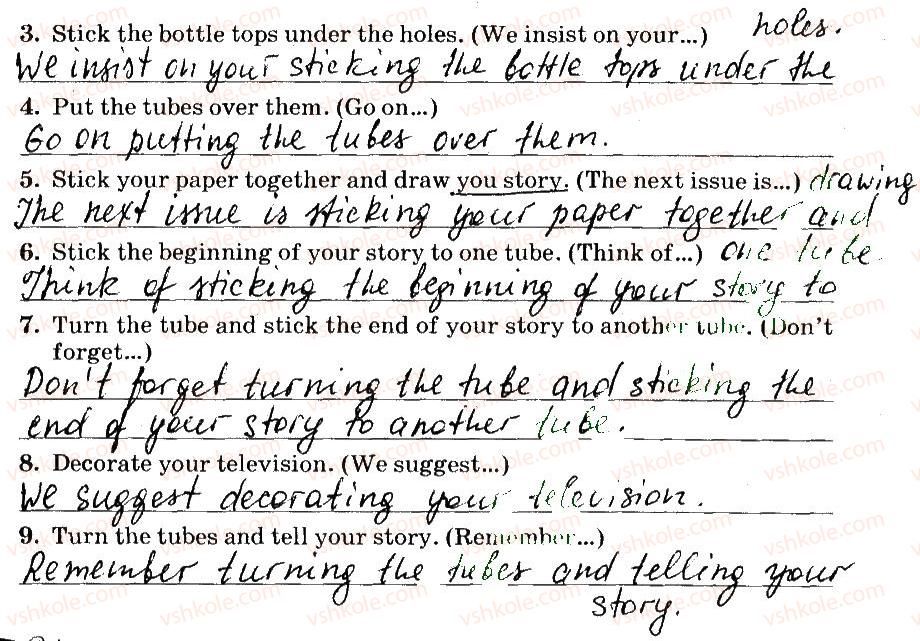 3. Stick the bottle tops under the holes. (We insist on your...) holes.
We insist on your sticking the bottle tops under the
4. Put the tubes over them. (Go on...)
Go on putting the tubes over them.
5. Stick your paper together and draw you story. (The next issue is...) drawing
The next issue is sticking your paper together and
6. Stick the beginning of your story to one tube. (Think of...) one tube
Think of sticking the beginning of your story to
7. Turn the tube and stick the end of your story to another tube. (Don't
forget...)
Don't forget turning the tube and sticking the
end of your story to another tube.
8. Decorate your television. (We suggest...)
We suggest decorating your television.
9. Turn the tubes and tell your story. (Remember...)
Remember turning the tubes and telling your
story.